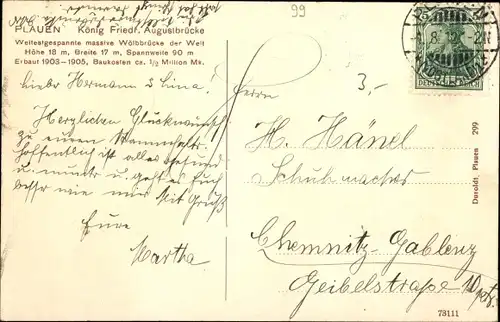 99
PLAUEN König Friedr. Augustbrücke
Weitestgespannte massive Wölbbrücke der Welt
Höhe 18 m, Breite 17 m, Spannweite 90 m
Erbaut 1903-1905, Baukosten ca. 1/2 Million Mk.
Liebe Hermann & Lina.
Herzlichen Glückwunsch
zu euren
Hoffentlich ist alles gesund
u. munter u. geht es Euch
besser wie mir Mit Gruß
Eure
Martha
3,-
Herrn
H. Hänel
Schuhmacher
Chemnitz-Gablenz
Geibelstraße
DEUTSCHES REICH
Plauen 299
73111